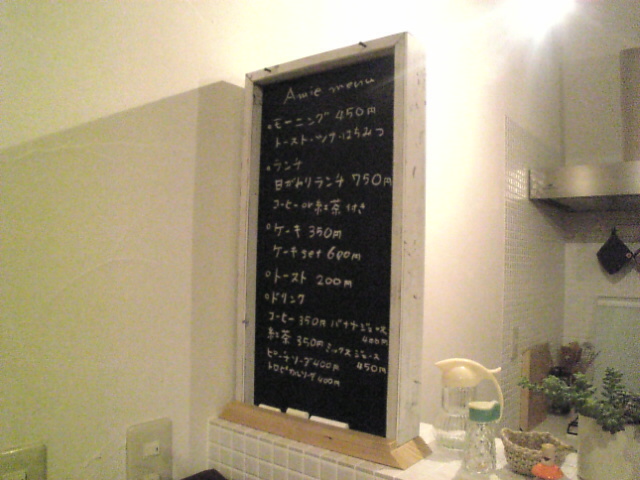 Amie menu
モーニング 450円
トースト・ツナ・はちみつ
ランチ
日がわりランチ 750円
コーヒー or 紅茶付き
ケーキ 350円
ケーキset 600円
トースト 200円
ドリンク
コーヒー 350円 バナナジュース 400円
紅茶 350円 ミックスジュース 450円
ピーチソーダ 400円
トロピカルソーダ 400円